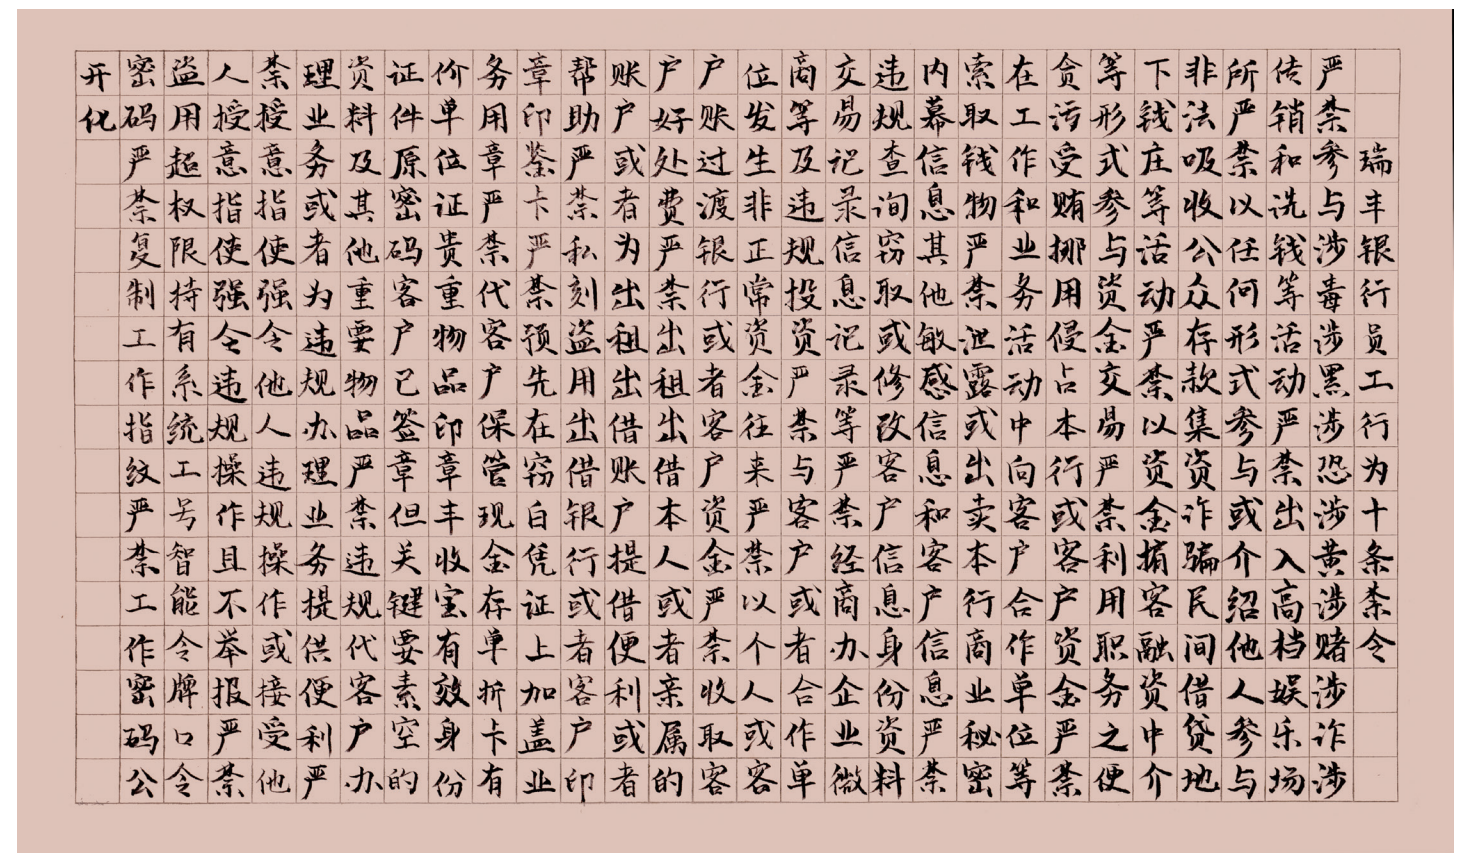 瑞丰银行员工行为十条禁令
严禁参与涉毒涉黑涉恐涉黄涉赌涉诈涉
传销和洗钱等活动严禁出入高档娱乐场
所严禁以任何形式参与或介绍他人参与
非法吸收公众存款集资诈骗民间借贷地
下钱庄等活动严禁以资金掮客融资中介
等形式参与资金交易严禁利用职务之便
贪污受贿挪用侵占本行或客户资金严禁
在工作和业务活动中向客户合作单位等
索取钱物严禁泄露或出卖本行商业秘密
内幕信息其他敏感信息和客户信息严禁
违规查询窃取或修改客户信息身份资料
交易记录信息记录等严禁经商办企业微
商等及违规投资严禁与客户或者合作单
位发生非正常资金往来严禁以个人或客
户账过渡银行或者客户资金严禁收取客
户好处费严禁出租出借本人或者亲属的
账户或者为出租出借账户提借便利或者
帮助严禁私刻盗用出借银行或者客户印
章印鉴卡严禁预先在窃白凭证上加盖业
务用章严禁代客户保管现金存单折卡有
价单位证贵重物品印章丰收宝有效身份
证件原密码客户已签章但关键要素空的
资料及其他重要物品严禁违规代客户办
理业务或者为违规办理业务提供便利严
禁授意指使强令他人违规操作或接受他
人授意指使强令违规操作且不举报严禁
盗用超权限持有系统工号智能令牌口令
密码严禁复制工作指纹严禁工作密码公
开化